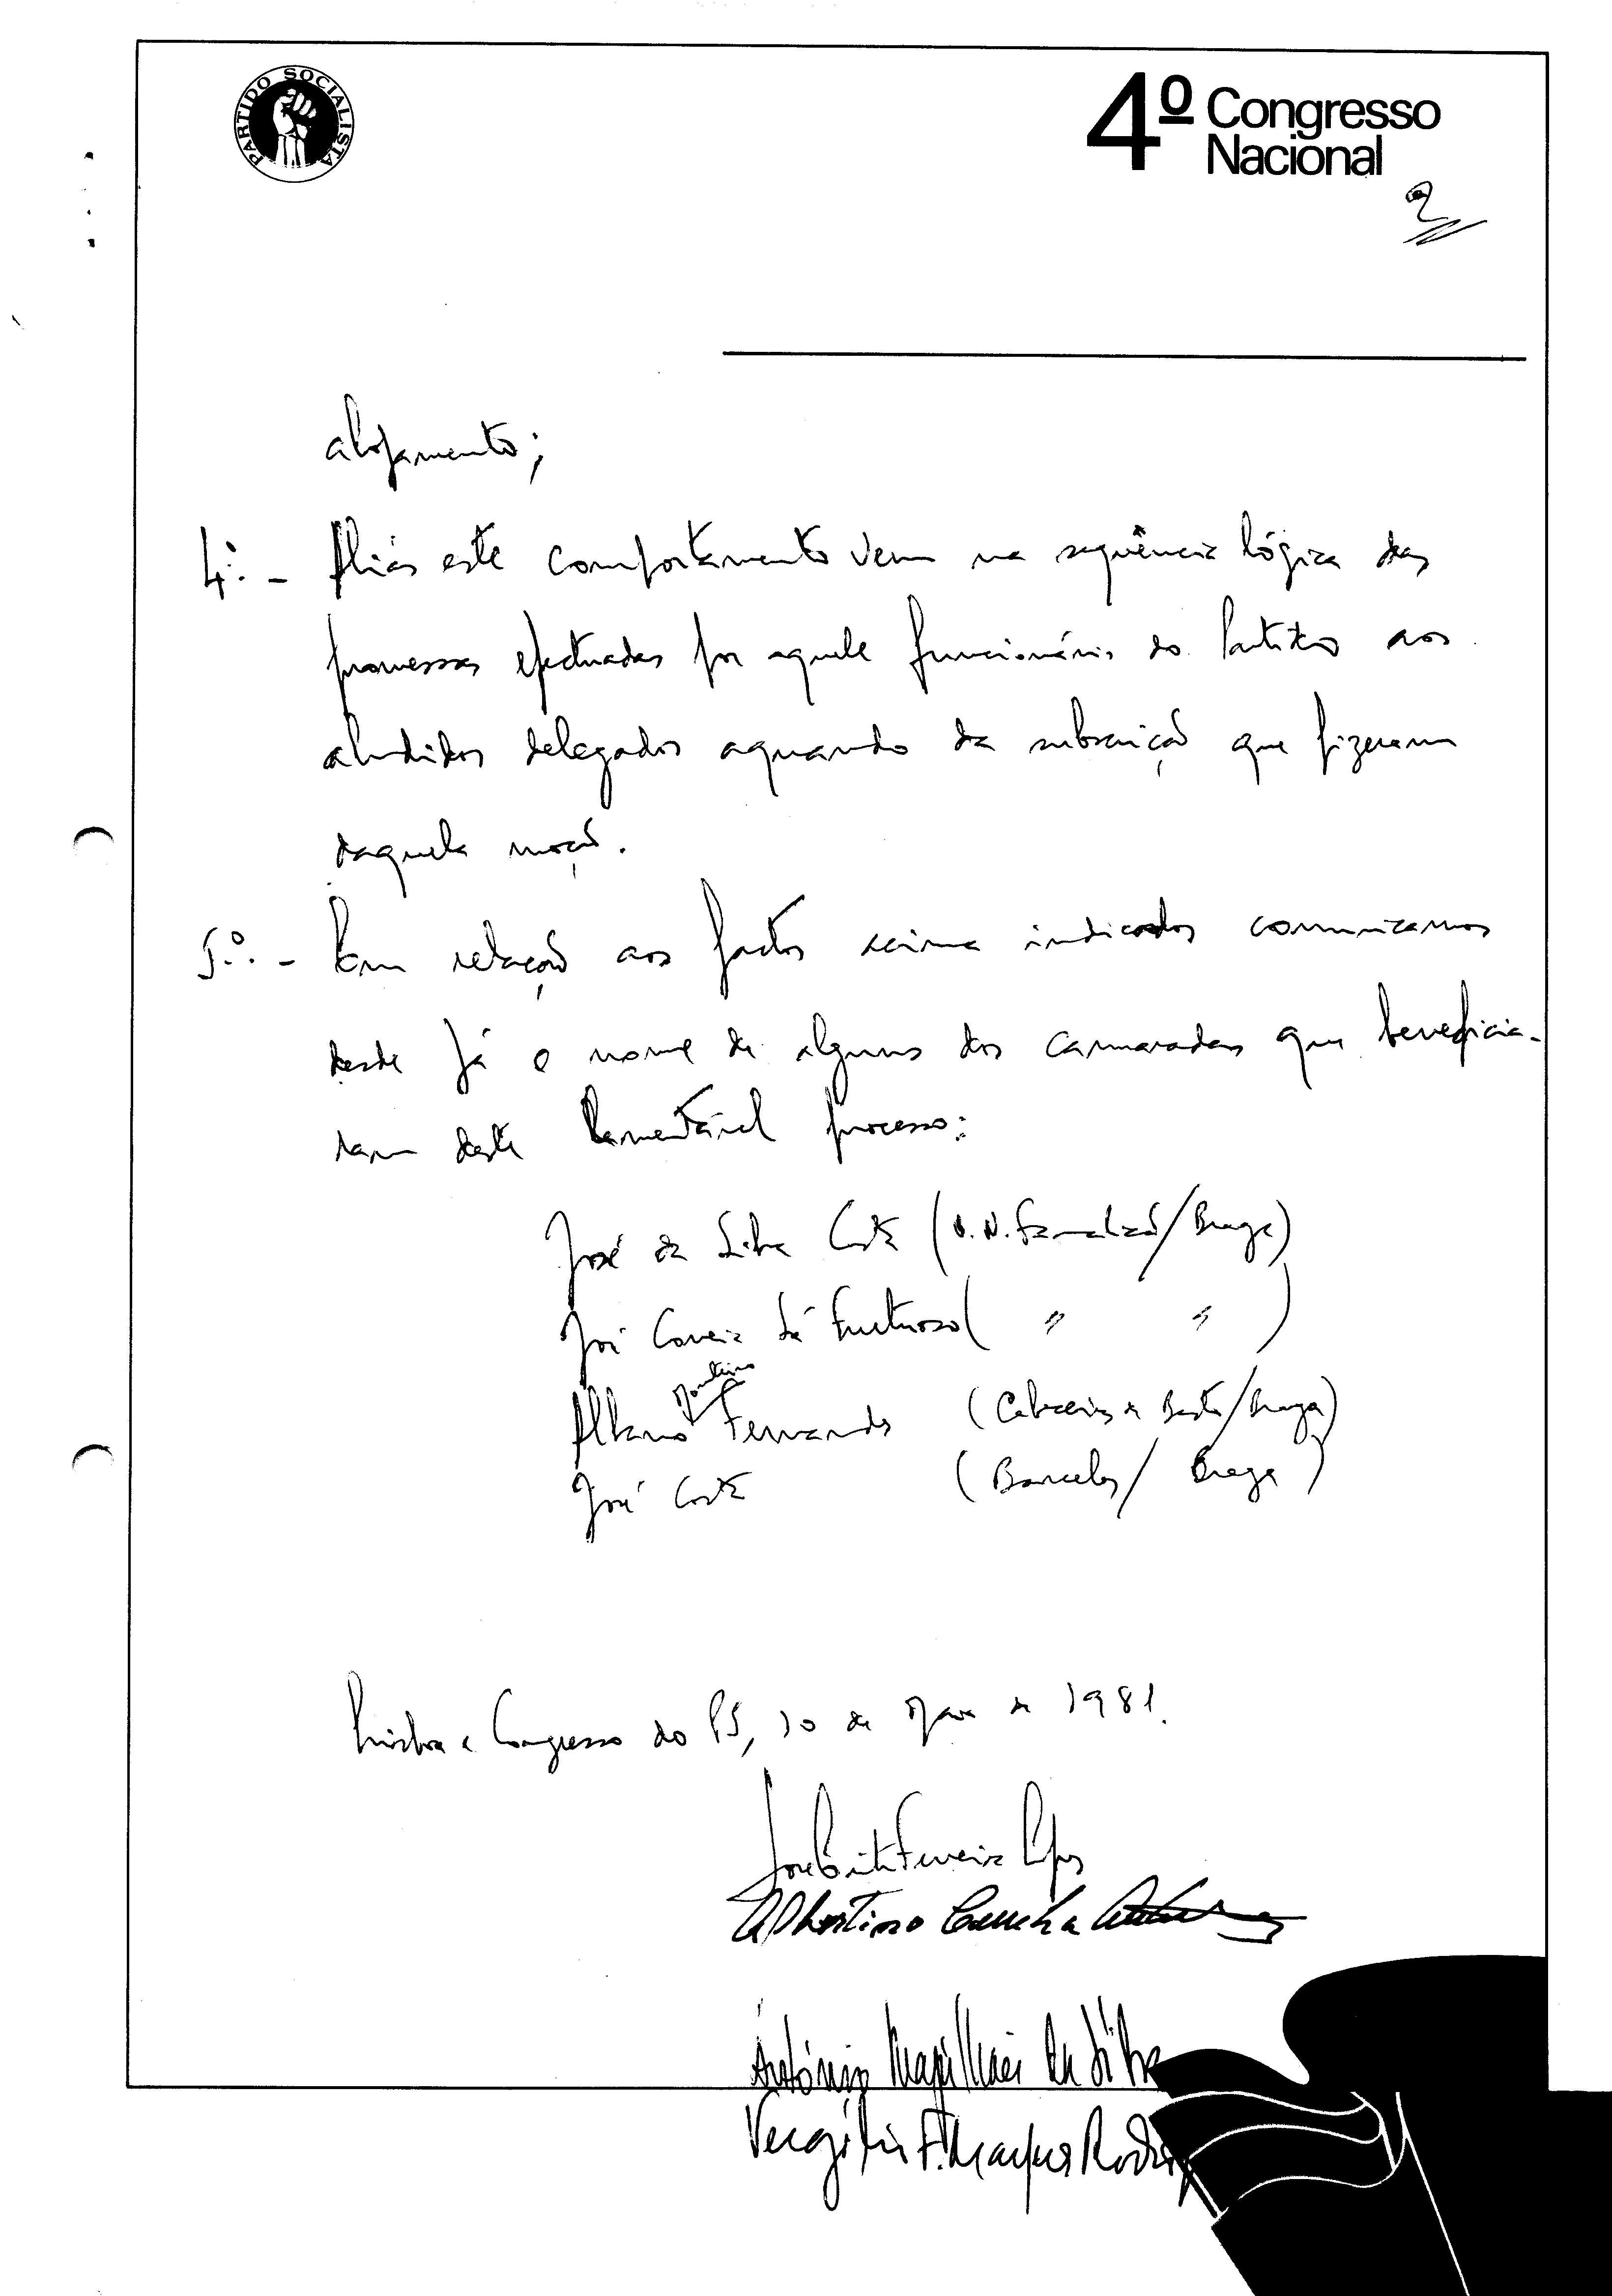 PARTIDO SOCIALISTA
4º Congresso
Nacional
2
alojamento;
4º. - Aliás este comportamento vem na sequência lógica das
promessas efectuadas por aquele funcionário do Partido aos
aludidos delegados aquando da subscrição que fizeram
daquela moção.
5º. - Em relação aos factos acima indicados comunicamos
desde já o nome de alguns dos camaradas que beneficia-
ram deste lamentável processo:
José da Silva Costa (V. N. Famalicão/Braga)
José Correia Sá Frutuoso ( " " )
Monteiro
Albano Fernandes (Cabeceiras de Basto/Braga)
José Costa (Barcelos/ Braga)
Lisboa e Congresso do PS, 10 de Maio de 1981.
José Brito Ferreira Lopes
Albertino Cunha
António Magalhães da Silva
Vergílio F. Marques Rodrig